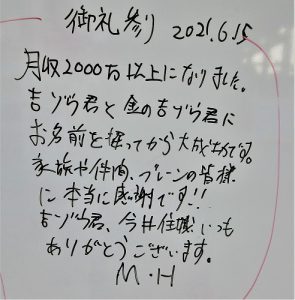 御礼参り 2021.6.15
月収2000万以上になりました。
吉ゾウ君と金の吉ゾウ君に
お名前を授ってから大成功です。
家族や仲間、ブレーンの皆様
に本当に感謝です!!
吉ゾウ君、今井住職いつも
ありがとうございます。
M・H